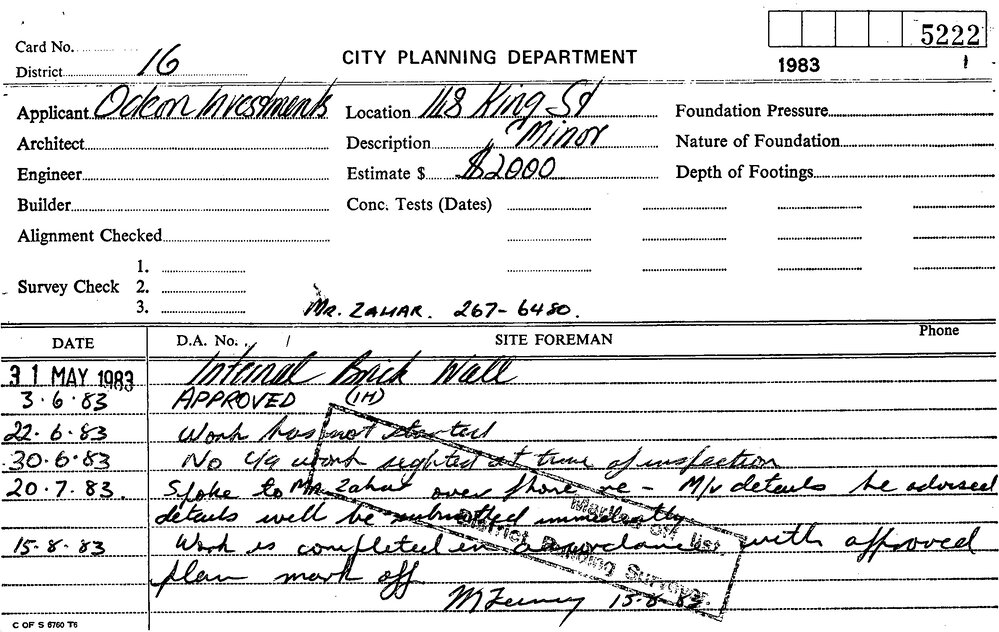 5222
Card No.
District 16
CITY PLANNING DEPARTMENT
1983 1
Applicant Odeon Investments
Location 118 King St
Foundation Pressure
Architect
Description Minor
Nature of Foundation
Engineer
Estimate $ $2000
Depth of Footings
Builder
Conc. Tests (Dates)
Alignment Checked
Survey Check
1.
2.
3.
MR. ZAHAR. 267-6480.
DATE
D.A. No.
SITE FOREMAN
Phone
31 MAY 1983 Internal Brick Wall
3.6.83 APPROVED (IH)
22.6.83 Work has not started
30.6.83 No work sighted at time of inspection
20.7.83. Spoke to Mr Zahar over phone re - M/v details he advised
details will be submitted immediately
15.8.83 Work is completed in accordance with approved
plan mark off
15-8-83
Marked Off list.
District Building Surveyor.
C OF S 6760 T6